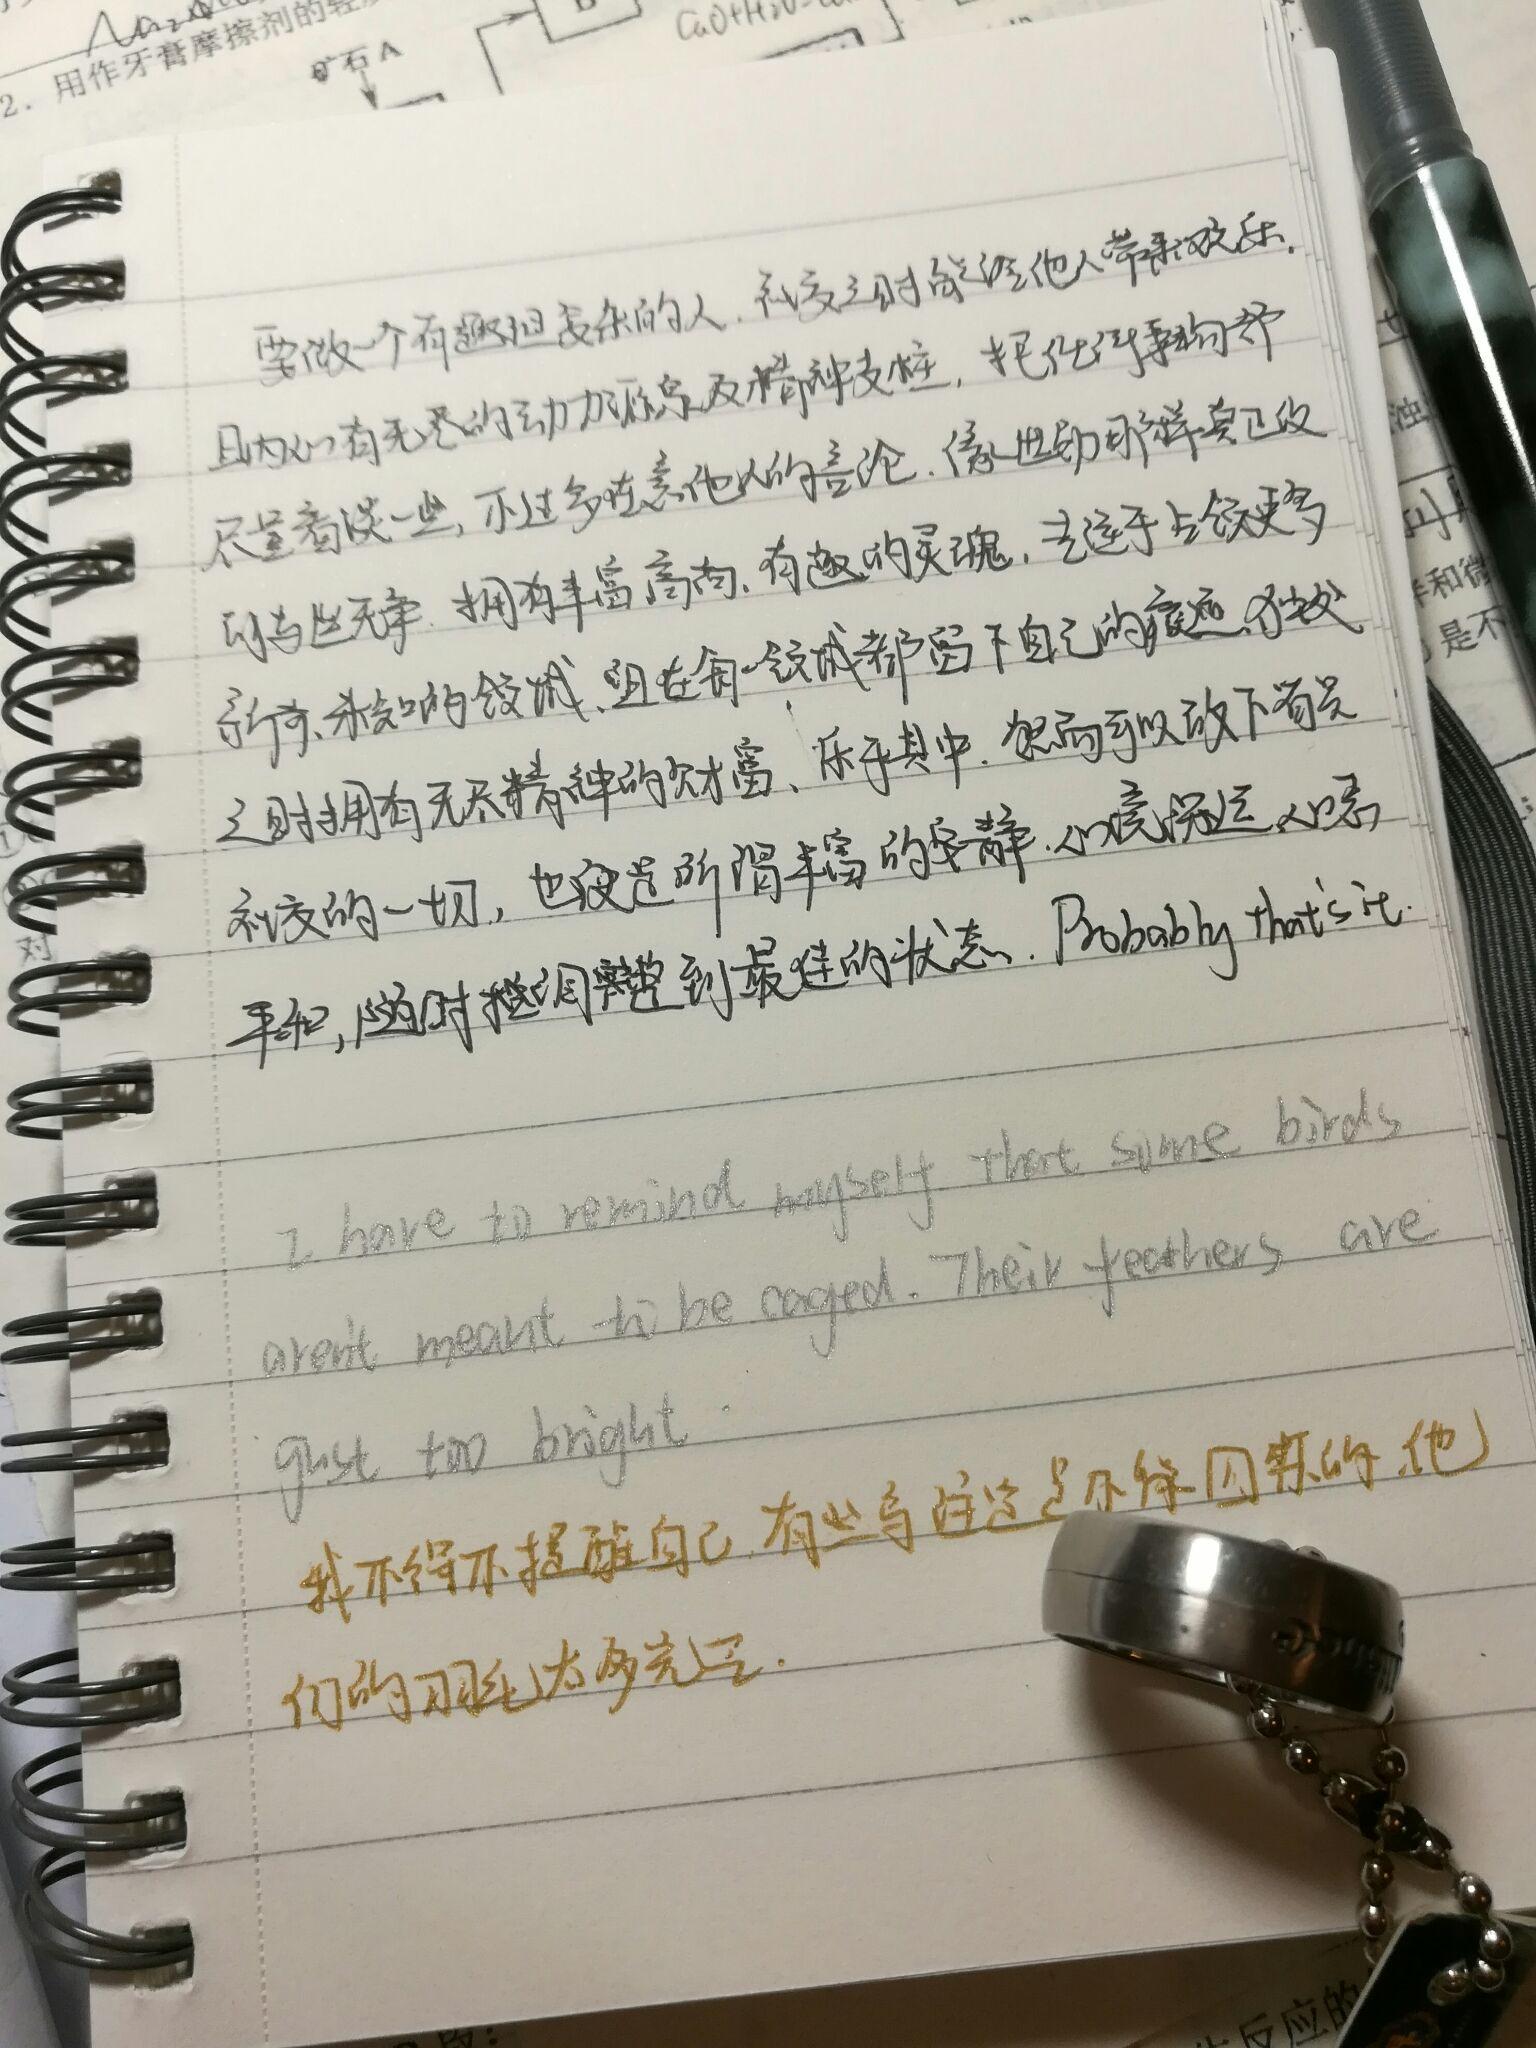 2. 用作牙膏摩擦剂的轻
矿石A
B
要做一个有趣且复杂的人.社交之时能给他人带来欢乐.
且内心有无尽的动力源泉及精神支柱,把任何事物都
尽量看淡一些,不过多在意他人的言论.像世勋那样真正做
到与世无争.拥有丰富高尚、有趣的灵魂,去逐手占领更多
新奇、未知的领域、且在每一领域都留下自己的痕迹.独处
之时拥有无尽精神的财富、乐乎其中.然而可以放下有关
社交的一切,也便是所谓丰富的安静.心境深远、心系
平和,随时能调整到最佳的状态. Probably that's it.
I have to remind myself that some birds
aren't meant to be caged. Their feathers are
gust too bright.
我不得不提醒自己,有些鸟注定是不停囚禁的.他
们的羽毛太多光

和微
是不
对
反应的